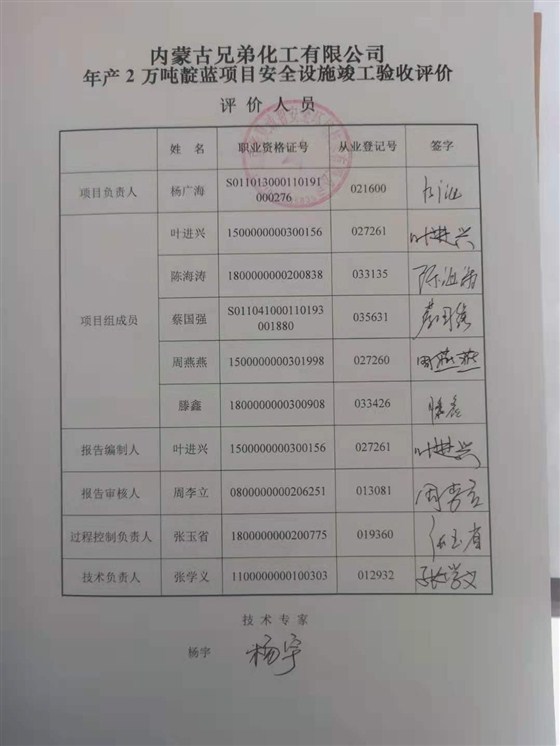 内蒙古兄弟化工有限公司
年产 2 万吨靛蓝项目安全设施竣工验收评价
评 价 人 员
姓 名 职业资格证号 从业登记号 签字
项目负责人 杨广海 S011013000110191000276 021600
项目组成员
叶进兴 1500000000300156 027261 叶进兴
陈海涛 1800000000200838 033135 陈海涛
蔡国强 S011041000110193001880 035631 蔡国强
周燕燕 1500000000301998 027260 周燕燕
滕鑫 1800000000300908 033426 滕鑫
报告编制人 叶进兴 1500000000300156 027261 叶进兴
报告审核人 周李立 0800000000206251 013081 周李立
过程控制负责人 张玉省 1800000000200775 019360 张玉省
技术负责人 张学义 1100000000100303 012932 张学义
技 术 专 家
杨宇 杨宇